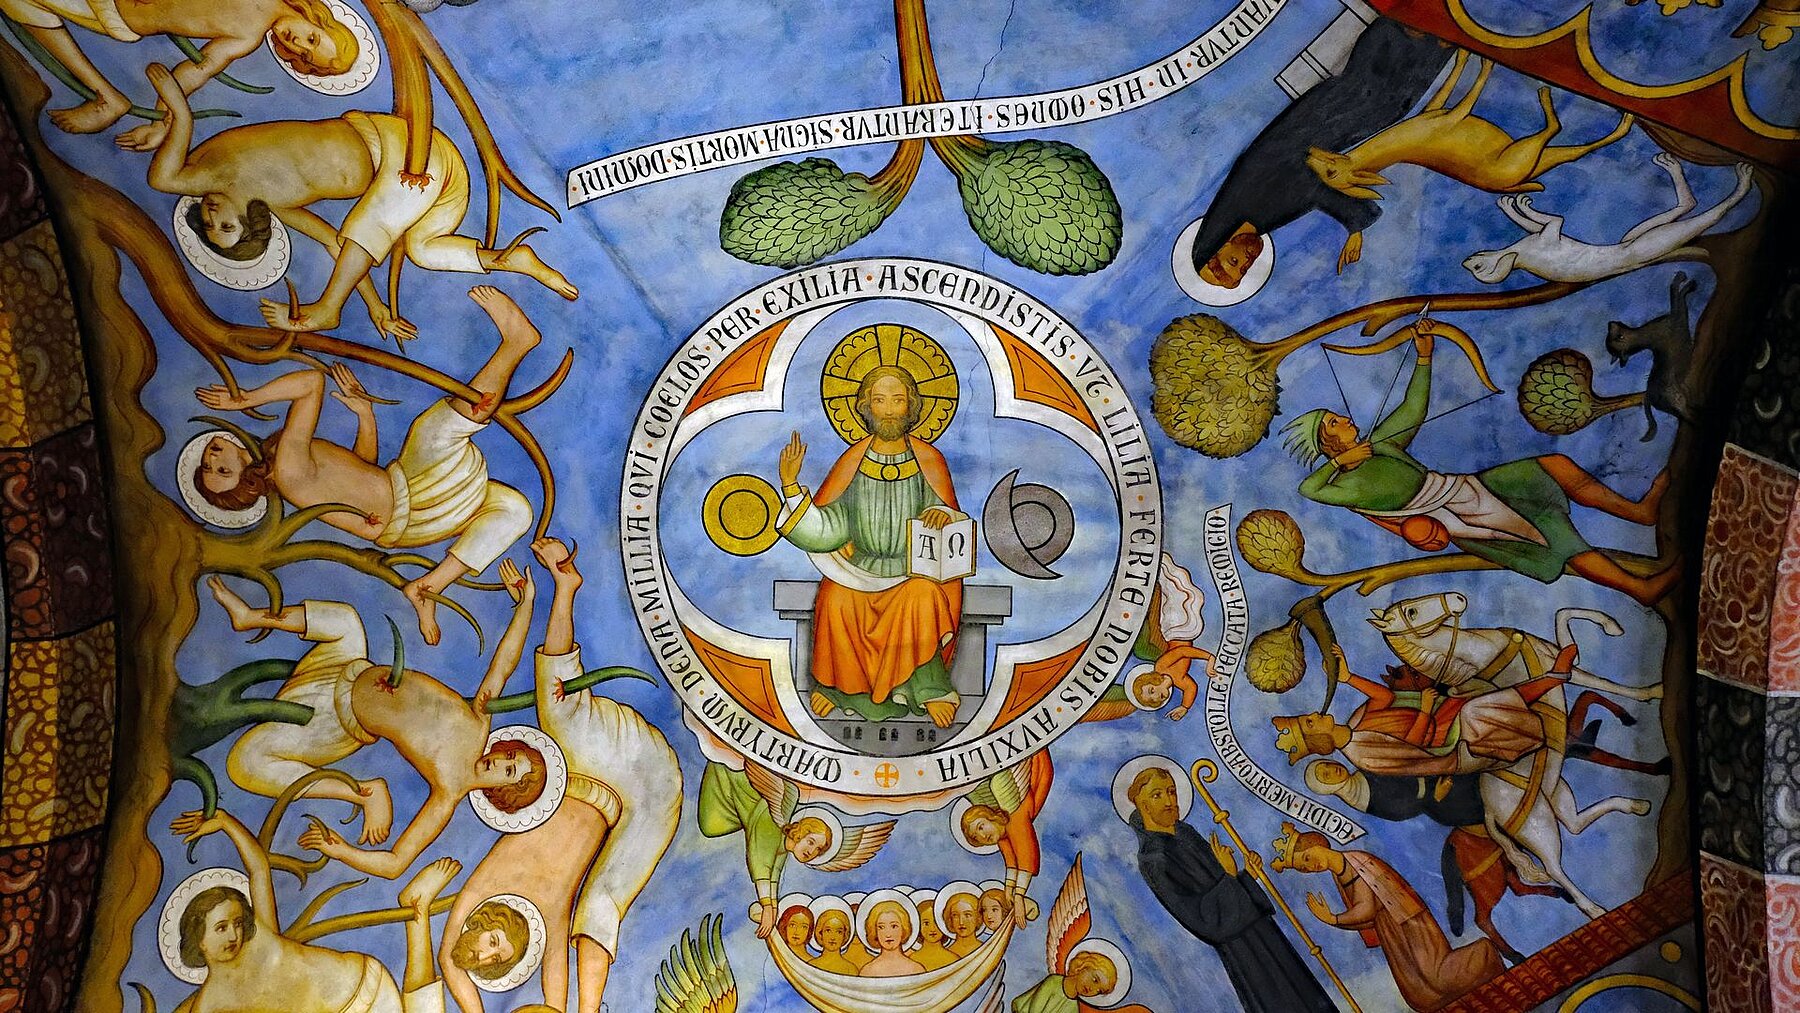 VANTVR · IN · HIS · OMNES · ITERANTVR · SIGNA · MORTIS · DOMINI
MARTYRVM · DENA · MILLIA · QVI · COELOS · PER · EXILIA · ASCENDISTIS · VT · LILIA · FERTE · NOBIS · AVXILIA
A Ω
EGIDII · MERITO · ABSTOLLE · PECCATA · REMIGIO ·